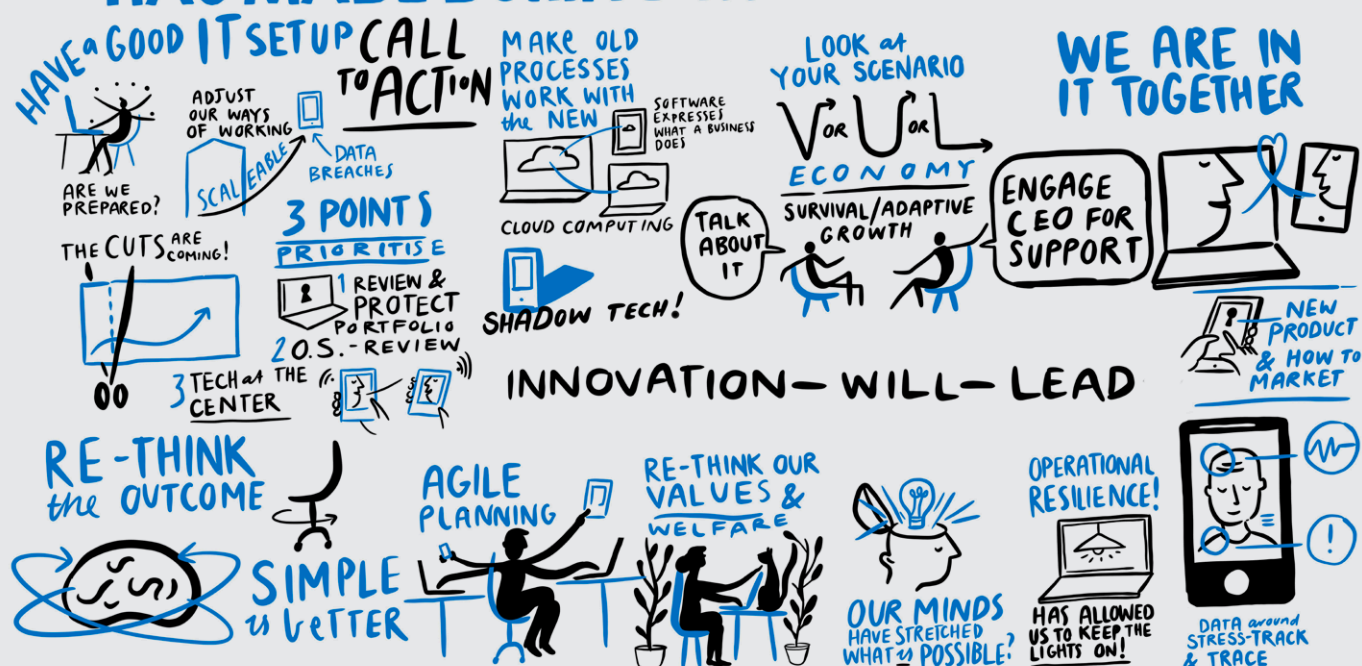 HAVE a GOOD IT SETUP
CALL
TO ACTION
ADJUST
OUR WAYS
OF WORKING
SCALEABLE
DATA
BREACHES
ARE WE
PREPARED?
THE CUTS ARE
COMING!
3 POINTS
PRIORITISE
1 REVIEW &
PROTECT
PORTFOLIO
2 O.S.-REVIEW
3 TECH at THE
CENTER
MAKE OLD
PROCESSES
WORK WITH
the NEW
SOFTWARE
EXPRESSES
WHAT A BUSINESS
DOES
CLOUD COMPUTING
SHADOW TECH!
LOOK at
YOUR SCENARIO
V OR U OR L
ECONOMY
SURVIVAL/ADAPTIVE
GROWTH
TALK
ABOUT
IT
ENGAGE
CEO FOR
SUPPORT
WE ARE IN
IT TOGETHER
NEW
PRODUCT
& HOW TO
MARKET
INNOVATION-WILL-LEAD
RE-THINK
the OUTCOME
SIMPLE
is beTTER
AGILE
PLANNING
RE-THINK OUR
VALUES &
WELFARE
OUR MINDS
HAVE STRETCHED
WHAT is POSSIBLE?
OPERATIONAL
RESILIENCE!
HAS ALLOWED
US TO KEEP THE
LIGHTS ON!
!
DATA around
STRESS-TRACK
& TRACE